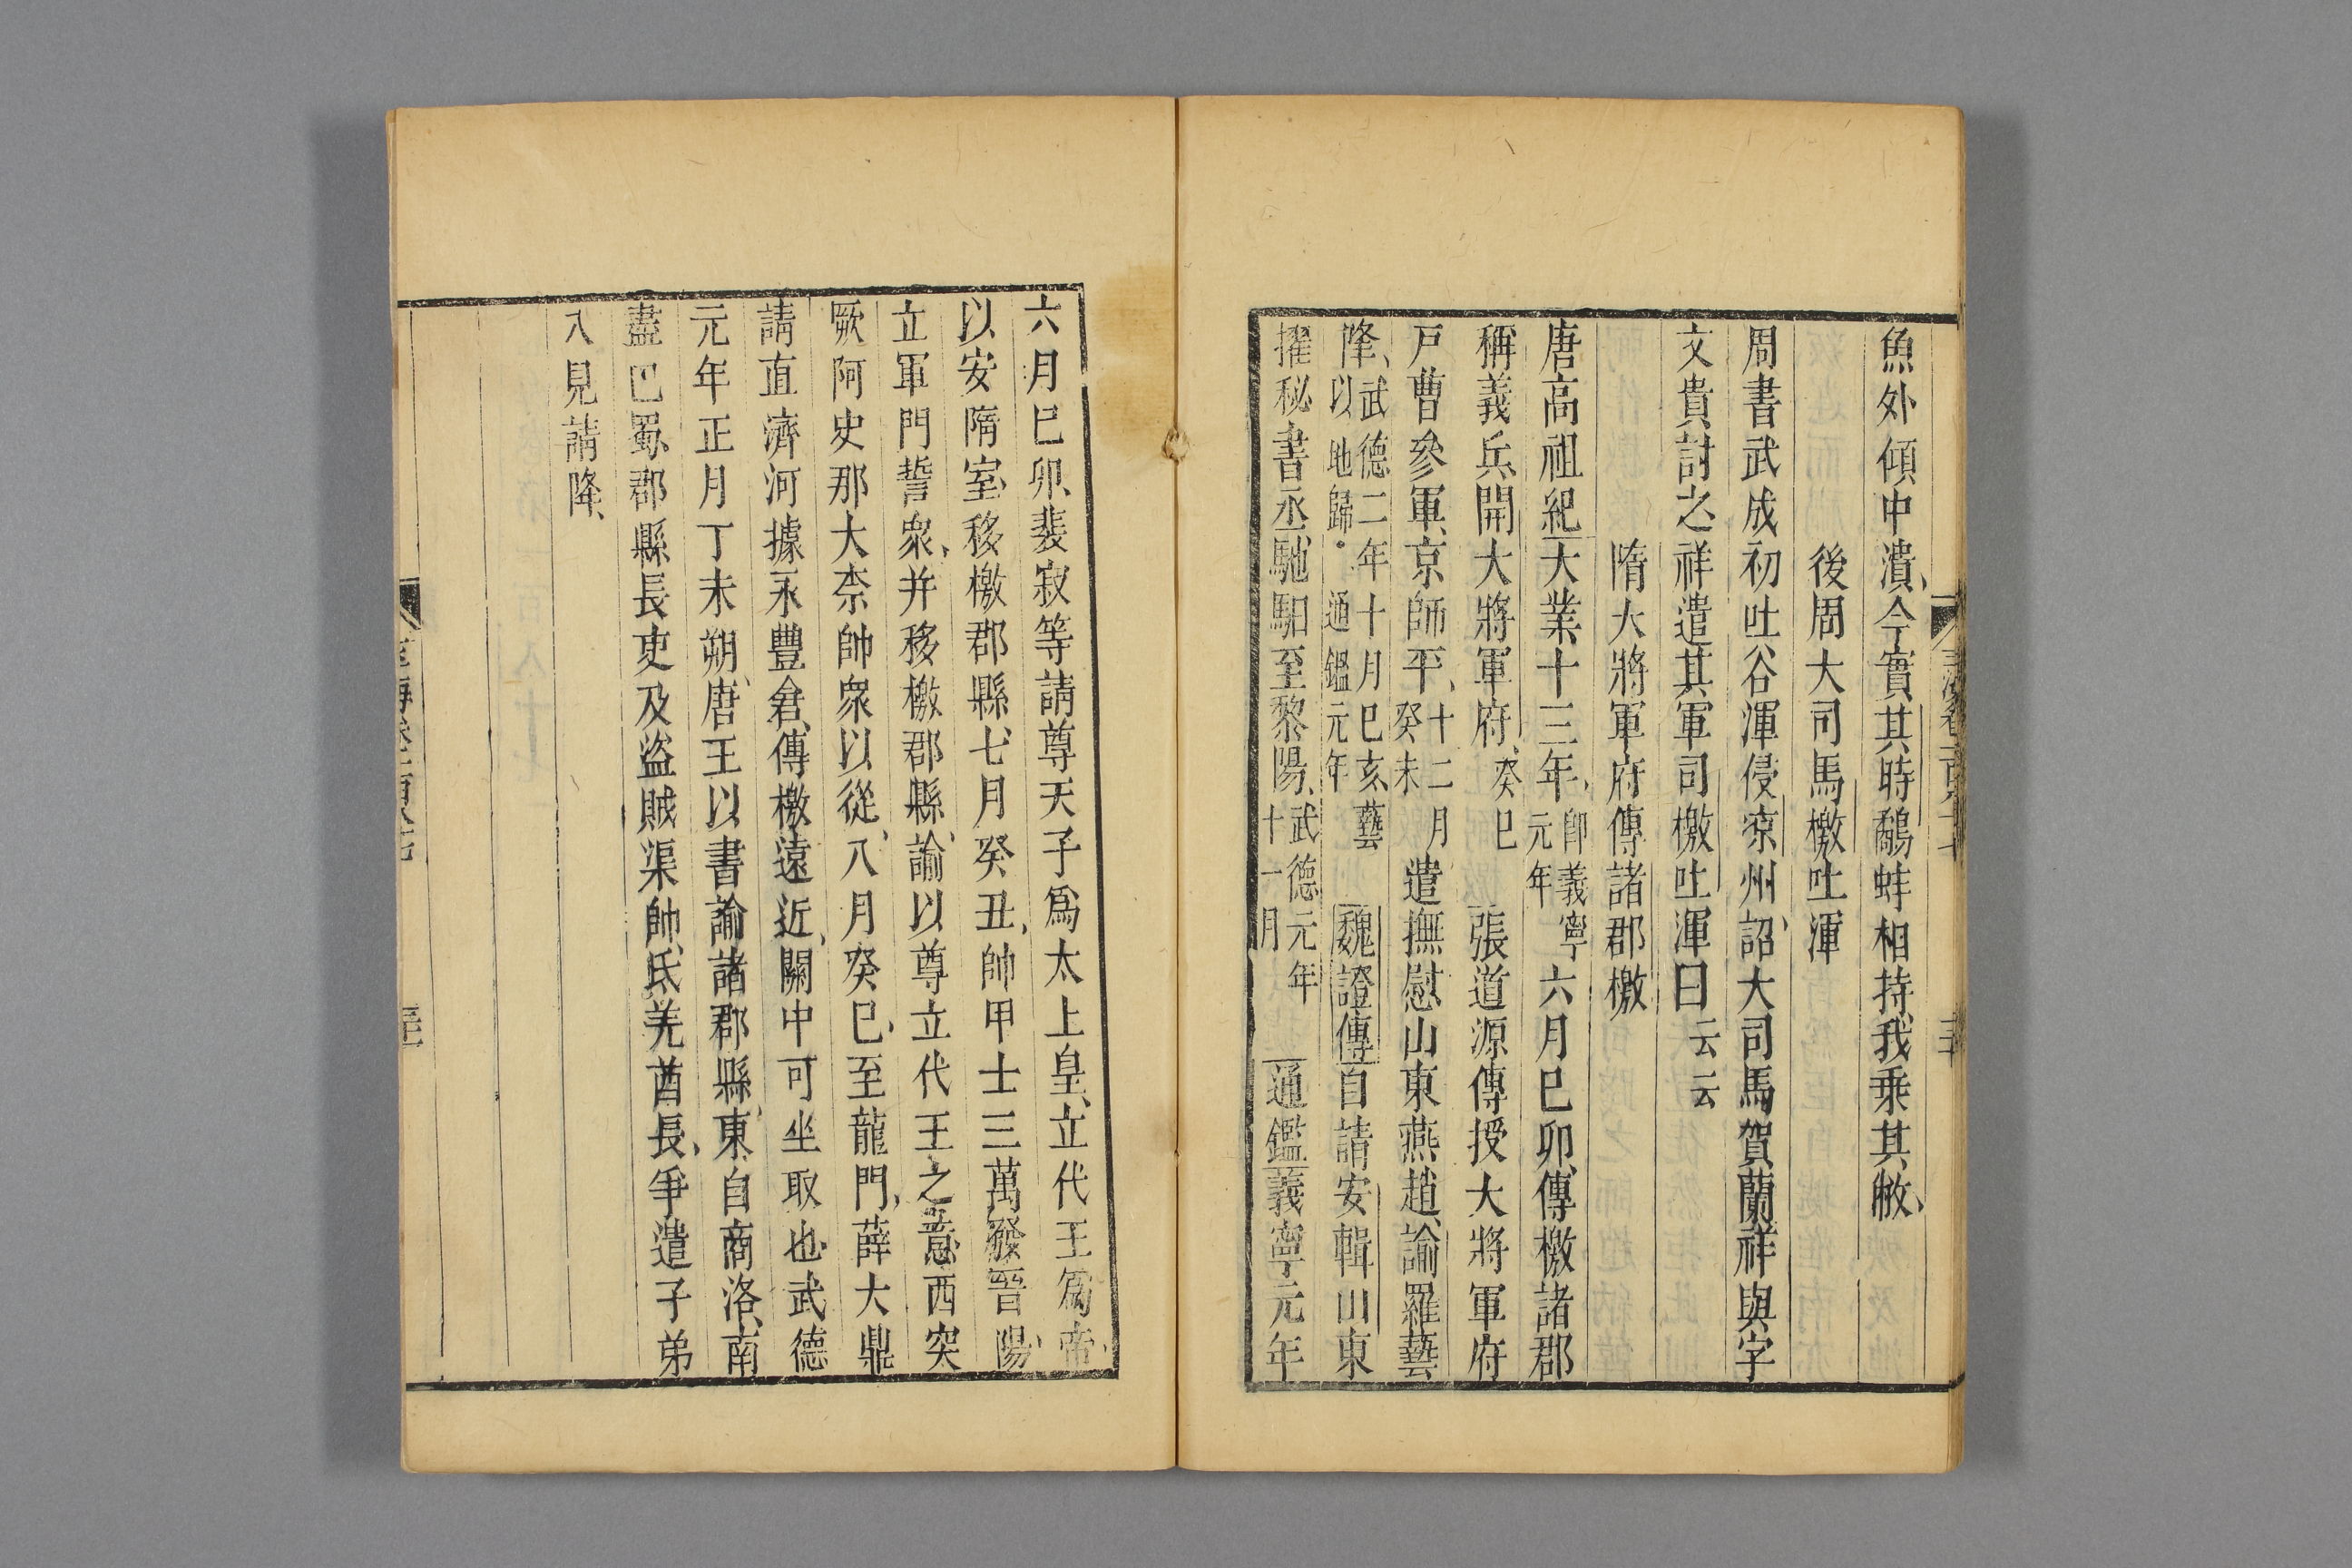 魚外傾中潰今實其時鷸蚌相持我乘其敝
後周大司馬檄吐渾
周書武成初吐谷渾侵涼州詔大司馬賀蘭祥與宇
文貴討之祥遣其軍司檄吐渾曰云云
隋大將軍府傳諸郡檄
唐高祖紀大業十三年卽義寧元年六月巳卯傳檄諸郡
稱義兵開大將軍府癸巳張道源傳授大將軍府
戸曹參軍京師平十二月癸未遣撫慰山東燕趙諭羅藝
降武德二年十月巳亥藝以地歸通鑑元年魏證傳自請安輯山東
擢秘書丞馳馹至黎陽武德元年十一月通鑑義寧元年
六月巳卯裴寂等請尊天子爲太上皇立代王爲帝
以安隋室移檄郡縣七月癸丑帥甲士三萬發晉陽
立軍門誓衆并移檄郡縣諭以尊立代王之意西突
厥阿史那大柰帥衆以從八月癸巳至龍門薛大鼎
請直濟河據永豐倉傳檄遠近關中可坐取也武德
元年正月丁未朔唐王以書諭諸郡縣東自商洛南
盡巴蜀郡縣長吏及盜賊渠帥氐羌酋長爭遣子弟
入見請降